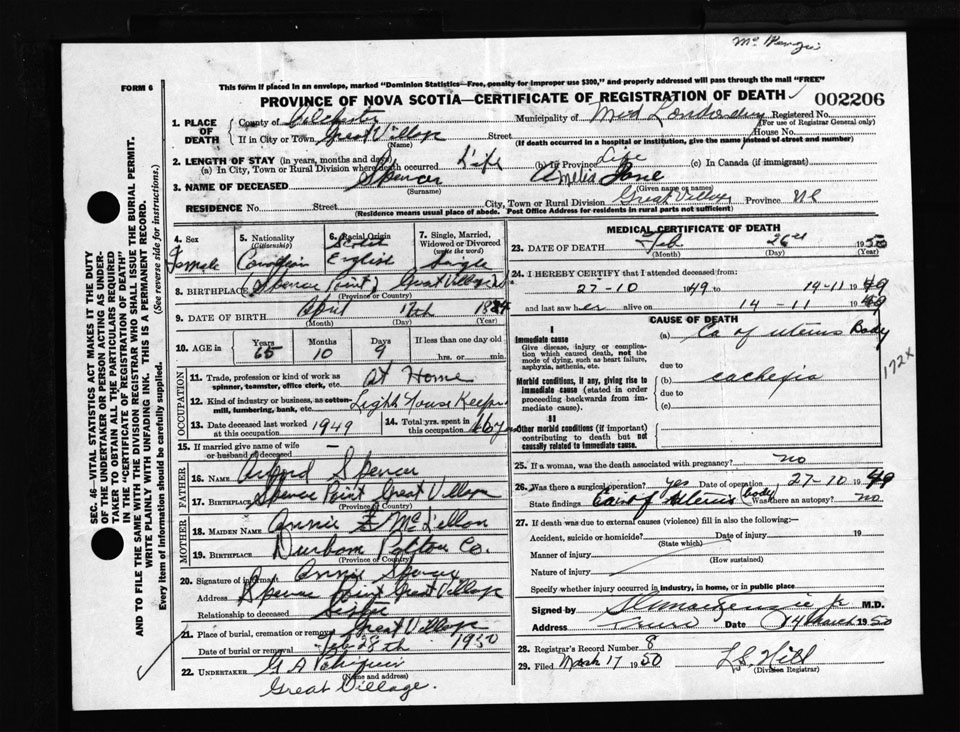 Mc Kenzie
FORM 6
This form if placed in an envelope, marked "Dominion Statistics—Free, penalty for improper use $300," and properly addressed will pass through the mail "FREE"
PROVINCE OF NOVA SCOTIA—CERTIFICATE OF REGISTRATION OF DEATH
002206
1. PLACE OF DEATH
County of Colchester
Municipality of Mid Londonderry Registered No.
(For use of Registrar General only)
If in City or Town Great Village Street House No.
(Name)
(If death occurred in a hospital or institution, give the name instead of street and number)
2. LENGTH OF STAY (in years, months and days)
(a) In City, Town or Rural Division where death occurred Life (b) In Province Life (c) In Canada (if immigrant)
3. NAME OF DECEASED Spencer Amelia Jane
(Surname) (Given name or names)
RESIDENCE No. Street City, Town or Rural Division Great Village Province NS
(Residence means usual place of abode. Post Office Address for residents in rural parts not sufficient)
SEC. 46—VITAL STATISTICS ACT MAKES IT THE DUTY
OF THE UNDERTAKER OR PERSON ACTING AS UNDER-
TAKER TO OBTAIN ALL THE PARTICULARS REQUIRED
IN THE "CERTIFICATE OF REGISTRATION OF DEATH"
AND TO FILE THE SAME WITH THE DIVISION REGISTRAR WHO SHALL ISSUE THE BURIAL PERMIT.
WRITE PLAINLY WITH UNFADING INK. THIS IS A PERMANENT RECORD.
Every item of information should be carefully supplied. (See reverse side for instructions.)
4. Sex
Female
5. Nationality
(Citizenship)
Canadian
6. Racial Origin
Scotch
English
7. Single, Married, Widowed or Divorced
(write the word)
Single
8. BIRTHPLACE Spencer Point Great Village
(Province or Country)
9. DATE OF BIRTH April 17th 1884
(Month) (Day) (Year)
10. AGE in
Years Months Days If less than one day old
65 10 9 hrs. or min.
OCCUPATION
11. Trade, profession or kind of work as spinner, teamster, office clerk, etc. At Home
12. Kind of industry or business, as cotton-mill, lumbering, bank, etc. Light House Keeper
13. Date deceased last worked at this occupation 1949
14. Total yrs. spent in this occupation
15. If married give name of wife or husband of deceased —
FATHER
16. Name Spencer
17. Birthplace Spencer Point Great Village
(Province or Country)
MOTHER
18. Maiden Name Annie McLellan
19. Birthplace Durham Pictou Co.
(Province or Country)
20. Signature of informant Annie Spencer
Address Spencer Point Great Village
Relationship to deceased Sister
21. Place of burial, cremation or removal Great Village
Date of burial or removal Feb 28th 1950
22. UNDERTAKER G A
(Name and address)
Great Village.
MEDICAL CERTIFICATE OF DEATH
23. DATE OF DEATH Feb 26th 1950
(Month) (Day) (Year)
24. I HEREBY CERTIFY that I attended deceased from:
27-10 1949 to 14-11 1949
and last saw her alive on 14-11 1949
CAUSE OF DEATH
I
Immediate cause
Give disease, injury or complication which caused death, not the mode of dying, such as heart failure, asphyxia, asthenia, etc.
(a) Ca of uterus Body
due to
Morbid conditions, if any, giving rise to immediate cause (stated in order proceeding backwards from immediate cause).
(b) cachexia
due to
(c)
II
Other morbid conditions (if important) contributing to death but not causally related to immediate cause.
172X
25. If a woman, was the death associated with pregnancy? no
26. Was there a surgical operation? yes Date of operation 27-10 1949
State findings Ca of Uterus (body) Was there an autopsy? no
27. If death was due to external causes (violence) fill in also the following:—
Accident, suicide or homicide? Date of injury 19
(State which)
Manner of injury
(How sustained)
Nature of injury
Specify whether injury occurred in industry, in home, or in public place
Signed by Jr M.D.
Address Truro Date 14 March 1950
28. Registrar's Record Number 8
29. Filed March 17 1950 L.S. Hill
(Division Registrar)